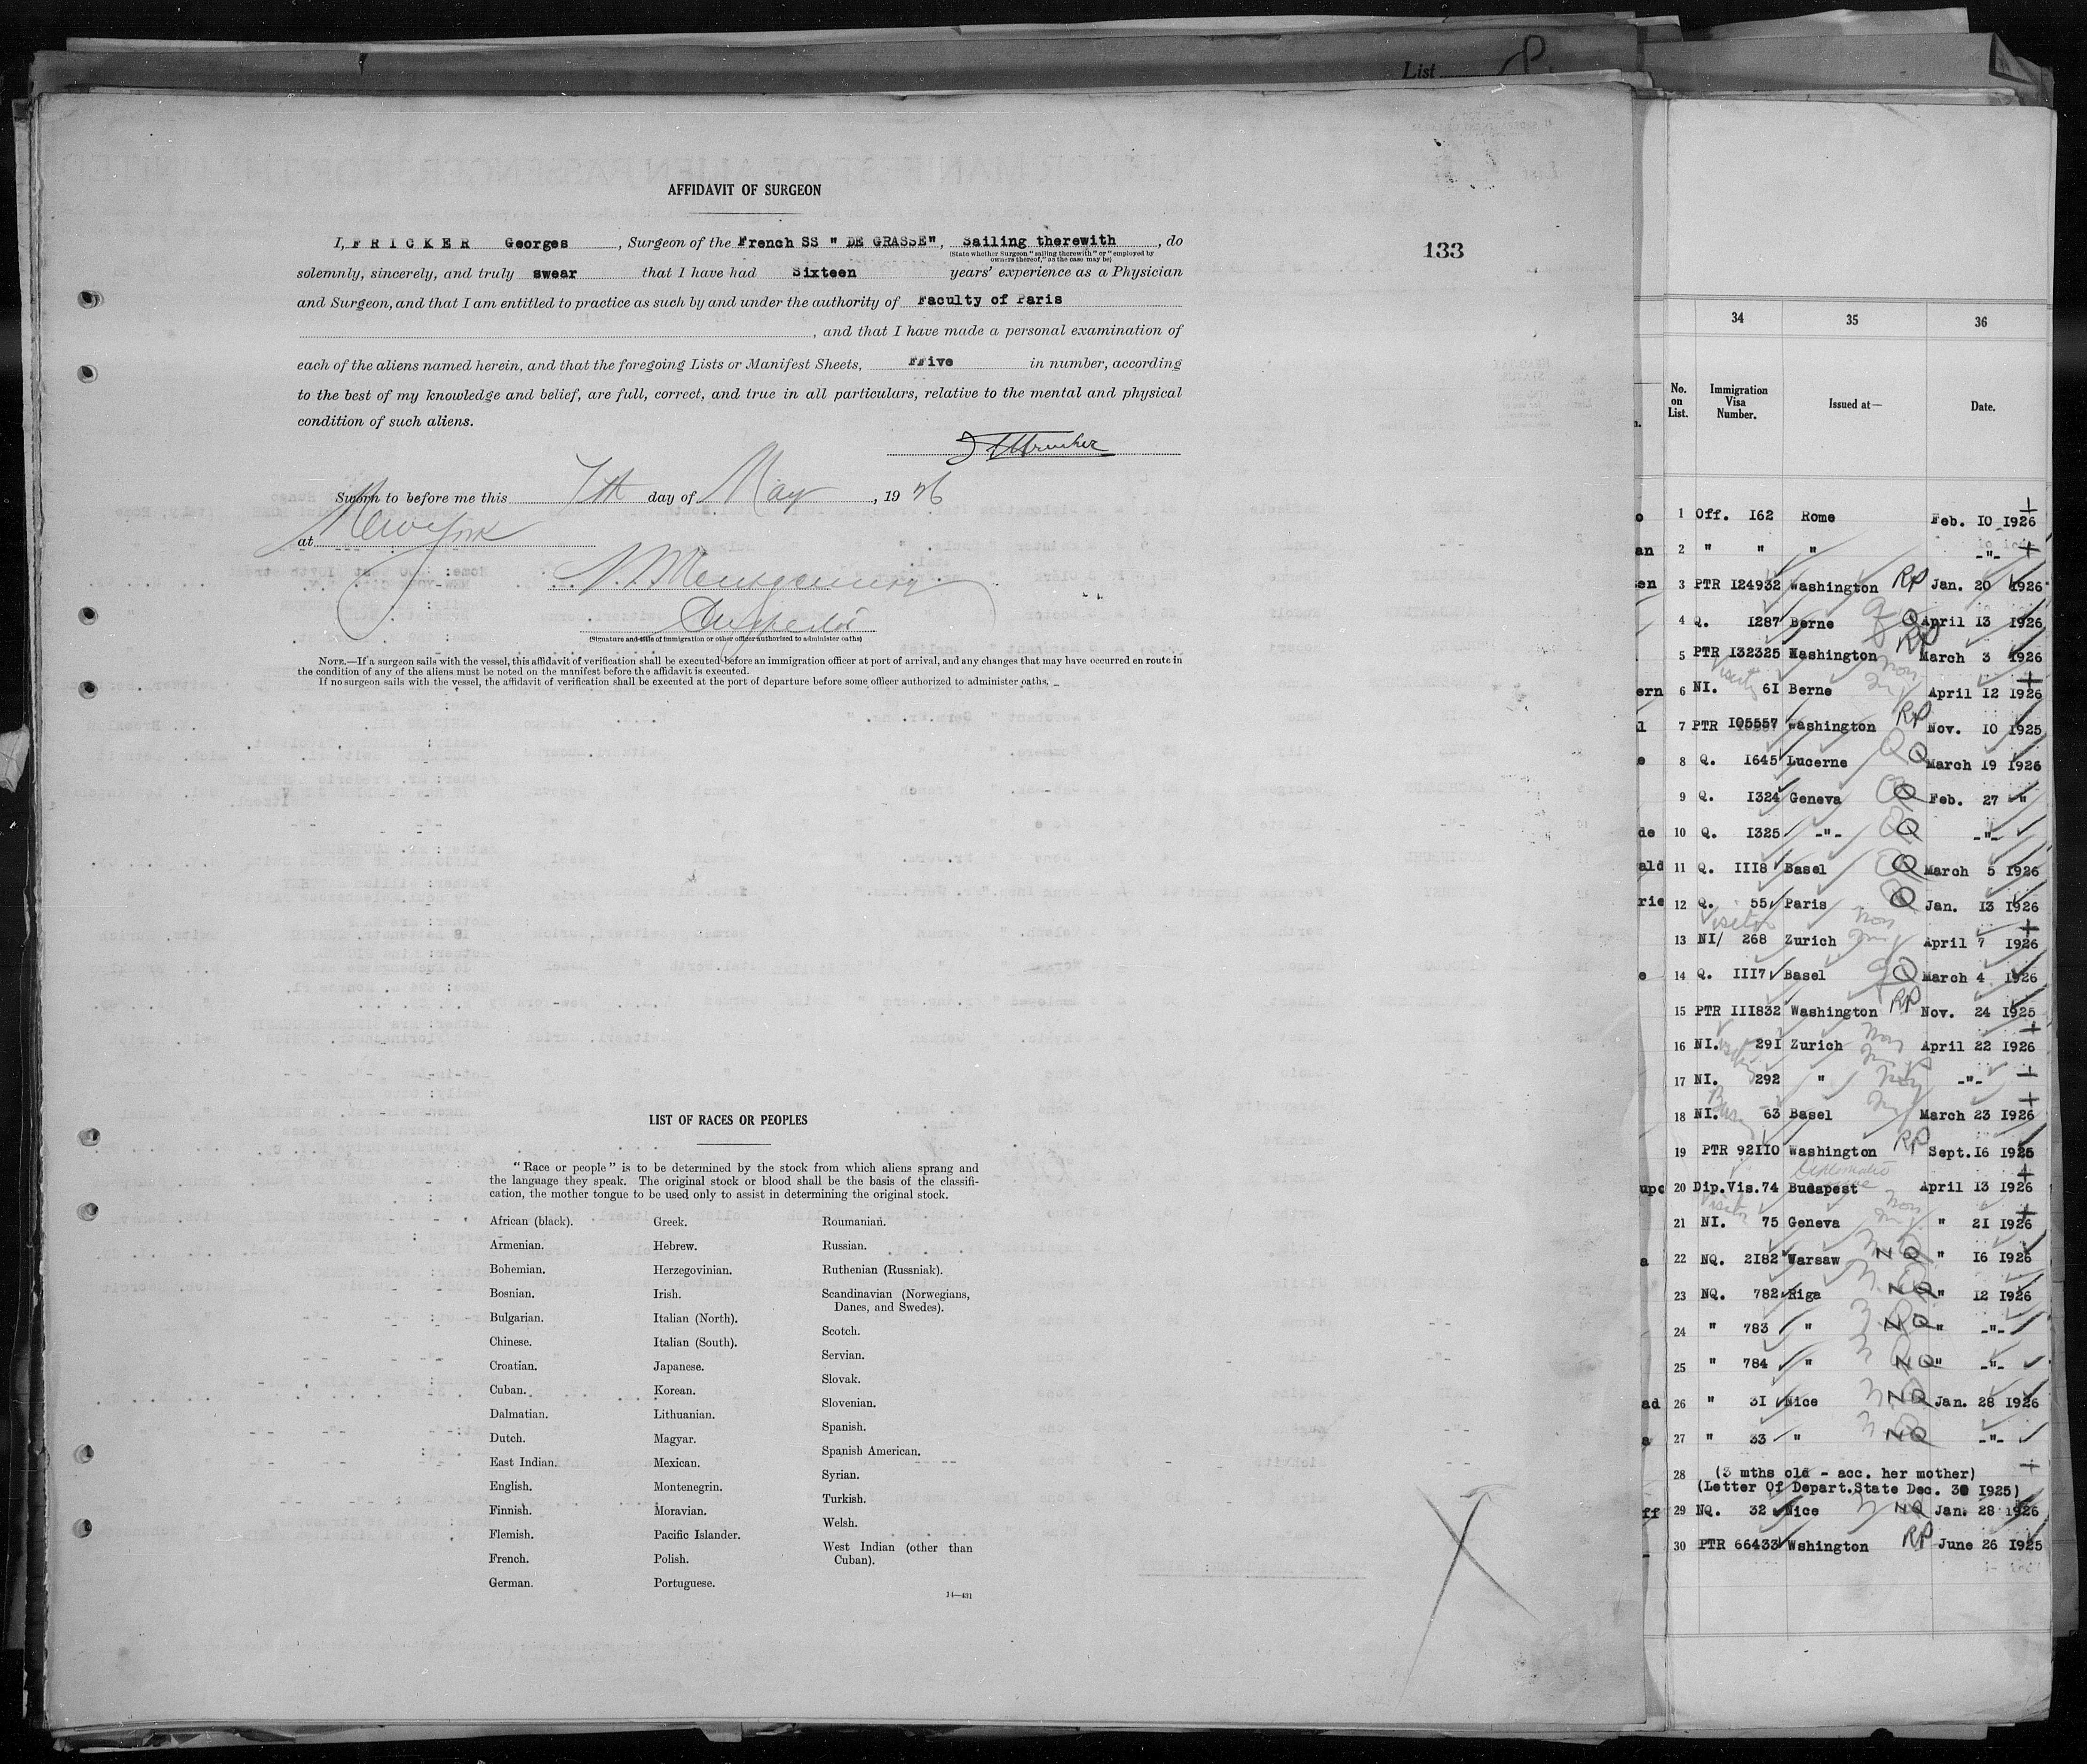 List
AFFIDAVIT OF SURGEON
I, FRICKER Georges, Surgeon of the French SS " DE GRASSE", Sailing therewith, do
(State whether Surgeon "sailing therewith" or "employed by
owners thereof," as the case may be)
133
solemnly, sincerely, and truly swear that I have had Sixteen years' experience as a Physician
and Surgeon, and that I am entitled to practice as such by and under the authority of Faculty of Paris
, and that I have made a personal examination of
each of the aliens named herein, and that the foregoing Lists or Manifest Sheets, Five in number, according
to the best of my knowledge and belief, are full, correct, and true in all particulars, relative to the mental and physical
condition of such aliens.
Sworn to before me this 7th day of May, 1926
at New York
Montgomery
Inspector
(Signature and title of immigration or other officer authorized to administer oaths)
NOTE.—If a surgeon sails with the vessel, this affidavit of verification shall be executed before an immigration officer at port of arrival, and any changes that may have occurred en route in
the condition of any of the aliens must be noted on the manifest before the affidavit is executed.
If no surgeon sails with the vessel, the affidavit of verification shall be executed at the port of departure before some officer authorized to administer oaths.
LIST OF RACES OR PEOPLES
"Race or people" is to be determined by the stock from which aliens sprang and
the language they speak. The original stock or blood shall be the basis of the classifi-
cation, the mother tongue to be used only to assist in determining the original stock.
African (black).
Armenian.
Bohemian.
Bosnian.
Bulgarian.
Chinese.
Croatian.
Cuban.
Dalmatian.
Dutch.
East Indian.
English.
Finnish.
Flemish.
French.
German.
Greek.
Hebrew.
Herzegovinian.
Irish.
Italian (North).
Italian (South).
Japanese.
Korean.
Lithuanian.
Magyar.
Mexican.
Montenegrin.
Moravian.
Pacific Islander.
Polish.
Portuguese.
Roumanian.
Russian.
Ruthenian (Russniak).
Scandinavian (Norwegians,
Danes, and Swedes).
Scotch.
Servian.
Slovak.
Slovenian.
Spanish.
Spanish American.
Syrian.
Turkish.
Welsh.
West Indian (other than
Cuban).
14—431
34 35 36
No. on List. Immigration Visa Number. Issued at— Date.
1 Off. 162 Rome Feb. 10 1926
2 " " " -"-
3 PTR 124932 Washington RP Jan. 20 1926
4 Q. 1287 Berne Q April 13 1926
5 PTR 132325 Washington RP March 3 1926
6 NI. 61 Berne April 12 1926
7 PTR 105557 Washington RP Nov. 10 1925
8 Q. 1645 Lucerne Q March 19 1926
9 Q. 1324 Geneva Q Feb. 27 "
10 Q. 1325 -"- Q -"-
11 Q. 1118 Basel Q March 5 1926
12 Q. 55 Paris Q Jan. 13 1926
13 NI/ 268 Zurich April 7 1926
14 Q. 1117 Basel Q March 4 1926
15 PTR 111832 Washington RP Nov. 24 1925
16 NI. 291 Zurich April 22 1926
17 NI. 292 " -"-
18 NI. 63 Basel March 23 1926
19 PTR 92110 Washington RP Sept. 16 1925
Diplomatic
20 Dip.Vis.74 Budapest April 13 1926
21 NI. 75 Geneva " 21 1926
22 NQ. 2182 Warsaw NQ " 16 1926
23 NQ. 782 Riga NQ " 12 1926
24 " 783 " NQ " -"-
25 " 784 " NQ " -"-
26 " 31 Nice NQ Jan. 28 1926
27 " 33 " NQ -"-
28 (3 mths old - acc. her mother)
(Letter Of Depart.State Dec. 30 1925)
29 NQ. 32 Nice NQ Jan. 28 1926
30 PTR 66433 Wshington RP June 26 1925